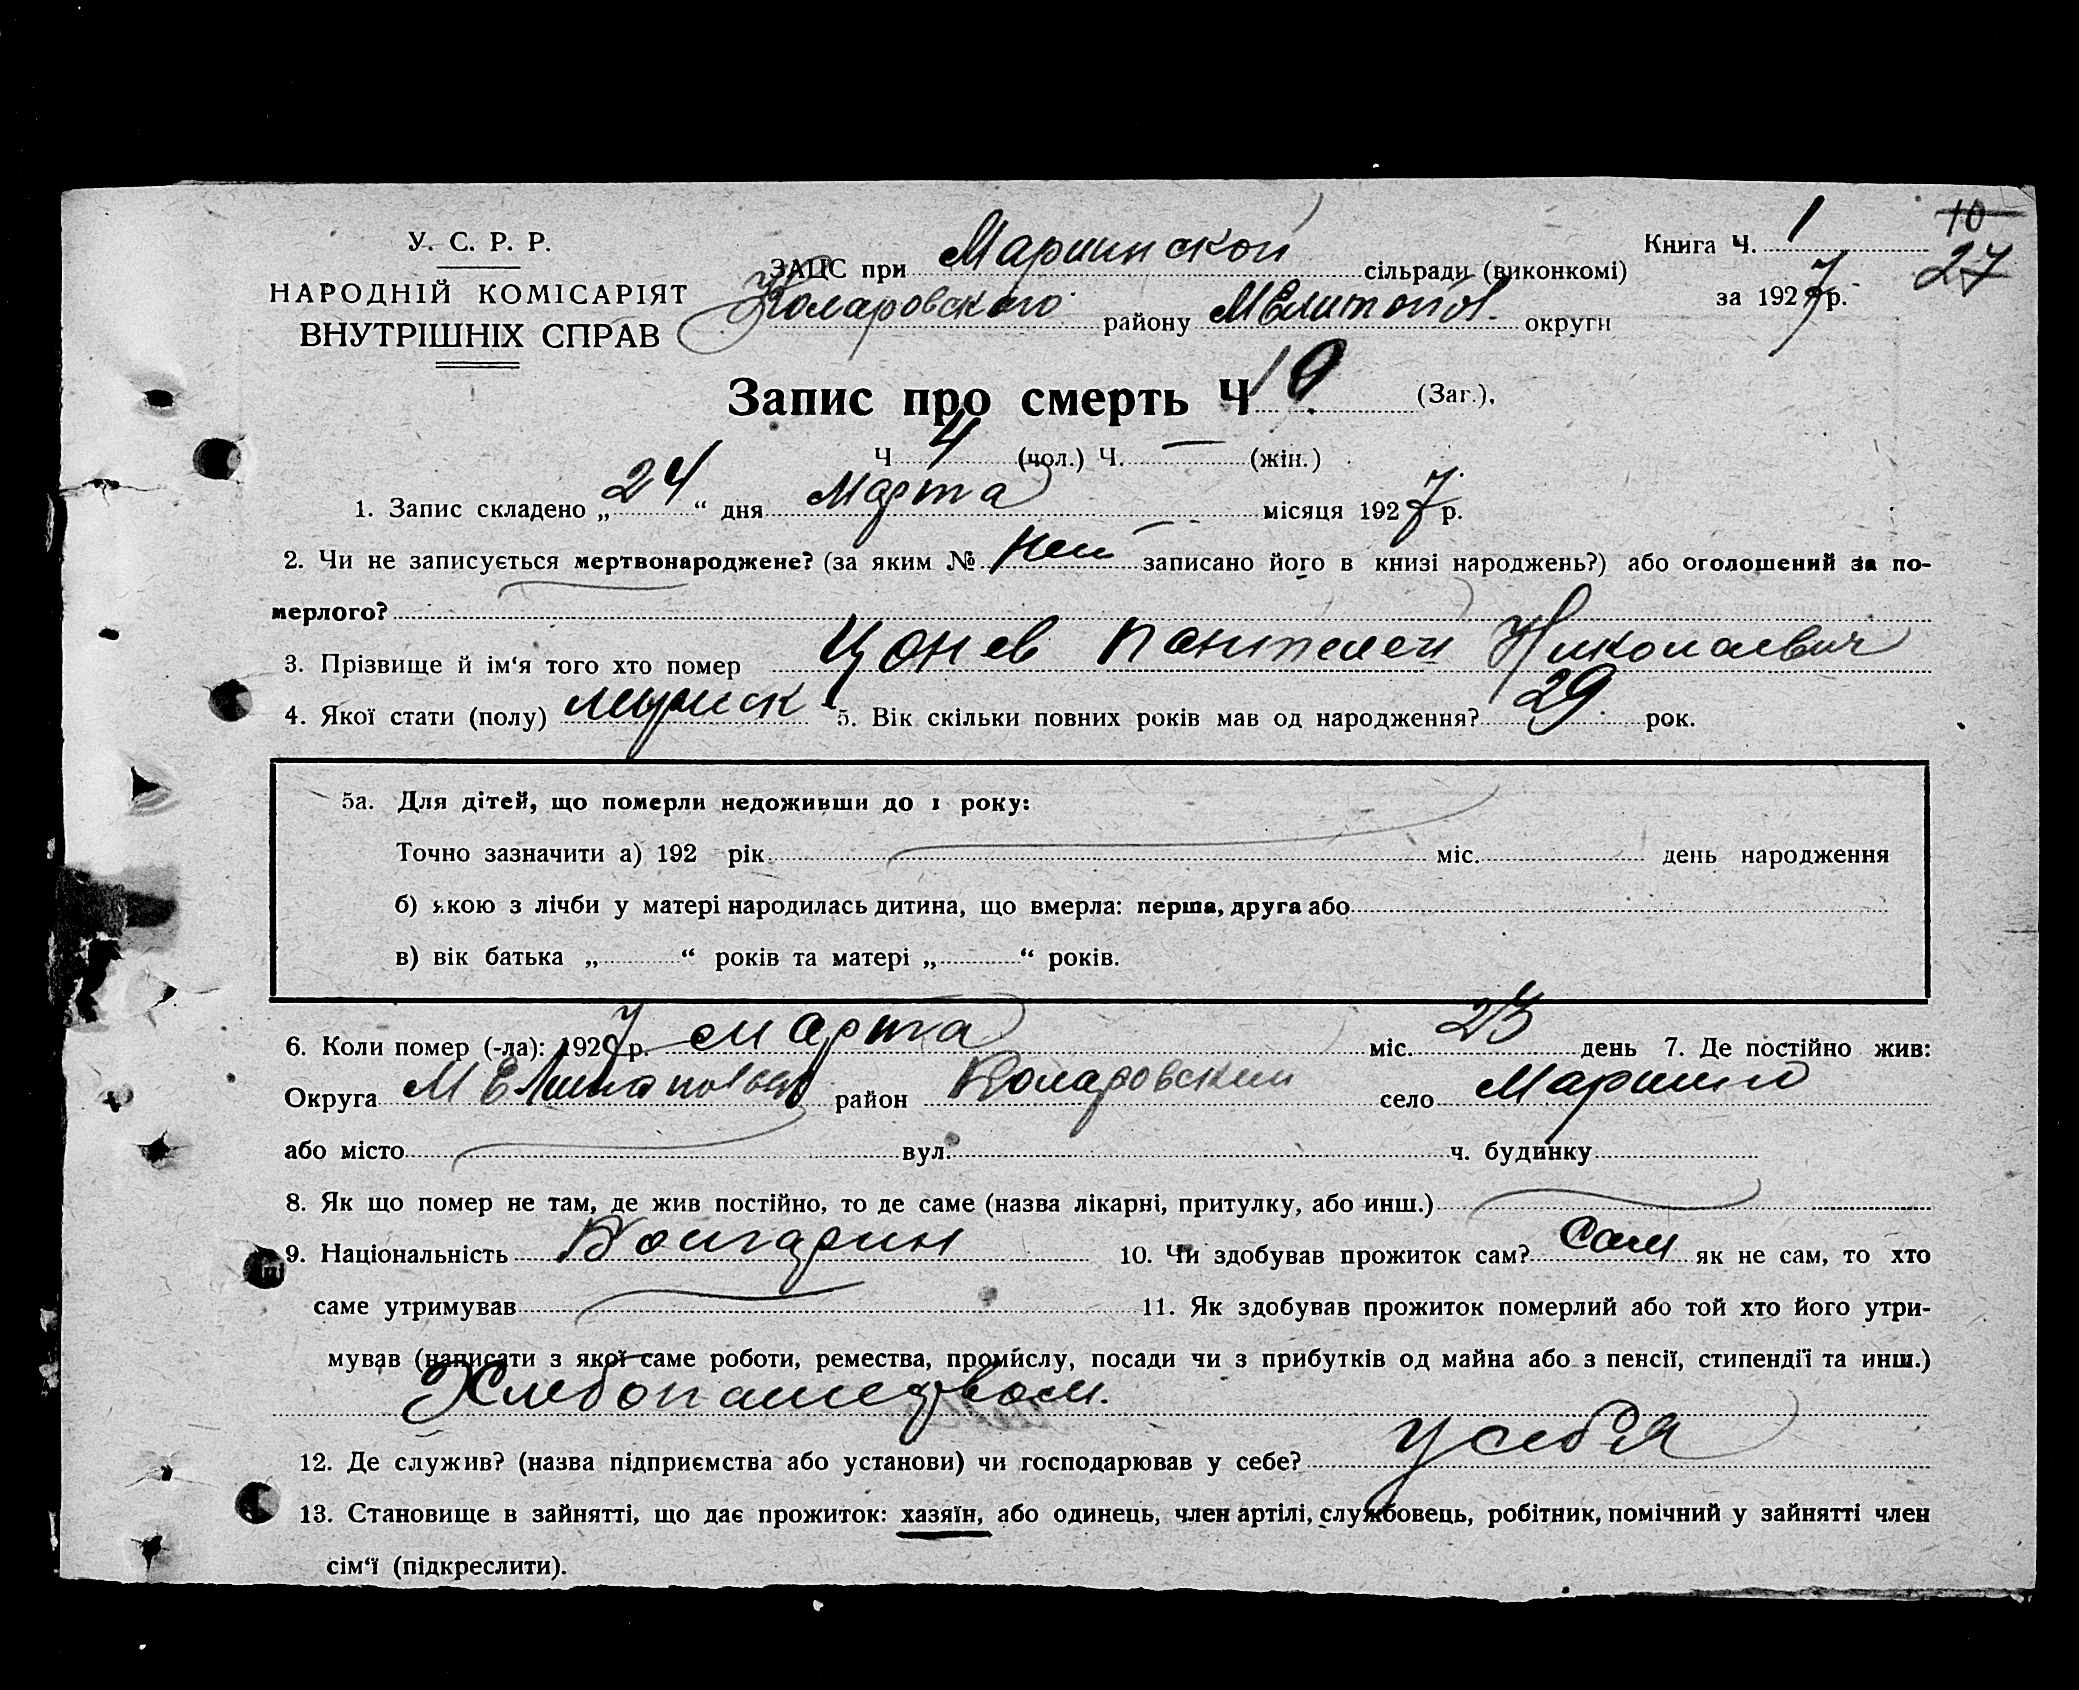 У. С. Р. Р.
НАРОДНІЙ КОМІСАРІЯТ
ВНУТРІШНІХ СПРАВ
ЗАЦС при Мариинской сільради (виконкомі)
Коларовского району Мелитопол. округи
Книга Ч. 1
за 1927 р.
10
27
Запис про смерть Ч 10 (Заг.),
Ч 4 (чол.) Ч. — (жін.)
1. Запис складено „24“ дня Марта місяця 1927 р.
2. Чи не записується мертвонароджене? (за яким № нет записано його в книзі народжень?) або оголошений за по-
мерлого?
3. Прізвище й ім‘я того хто помер Цонев Пантелей Николаевич
4. Якої стати (полу) мужск 5. Вік скільки повних років мав од народження? 29 рок.
5а. Для дітей, що померли недоживши до 1 року:
Точно зазначити а) 192 рік міс. день народження
б) якою з лічби у матері народилась дитина, що вмерла: перша, друга або
в) вік батька „ “ років та матері „ “ років.
6. Коли помер (-ла): 1927 р. марта міс. 23 день 7. Де постійно жив:
Округа район Коларовский село Марино
або місто вул. ч. будинку
8. Як що помер не там, де жив постійно, то де саме (назва лікарні, притулку, або инш.)
9. Національність Болгарин 10. Чи здобував прожиток сам? Сам як не сам, то хто
саме утримував 11. Як здобував прожиток померлий або той хто його утри-
мував (написати з якої саме роботи, ремества, промислу, посади чи з прибутків од майна або з пенсії, стипендії та инш.)
Хлебопашеством.
12. Де служив? (назва підприємства або установи) чи господарював у себе? у себя
13. Становище в зайнятті, що дає прожиток: хазяїн, або одинець, член артілі, службовець, робітник, помічний у зайнятті член
сім‘ї (підкреслити).